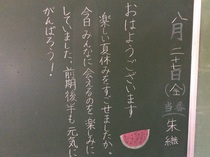 八月二十日(金)
当番 朱継
おはようございます
楽しい夏休みをすごせましたか。
今日みんなに会えるのを楽しみに
していました。前期後半も元気に
がんばろう!